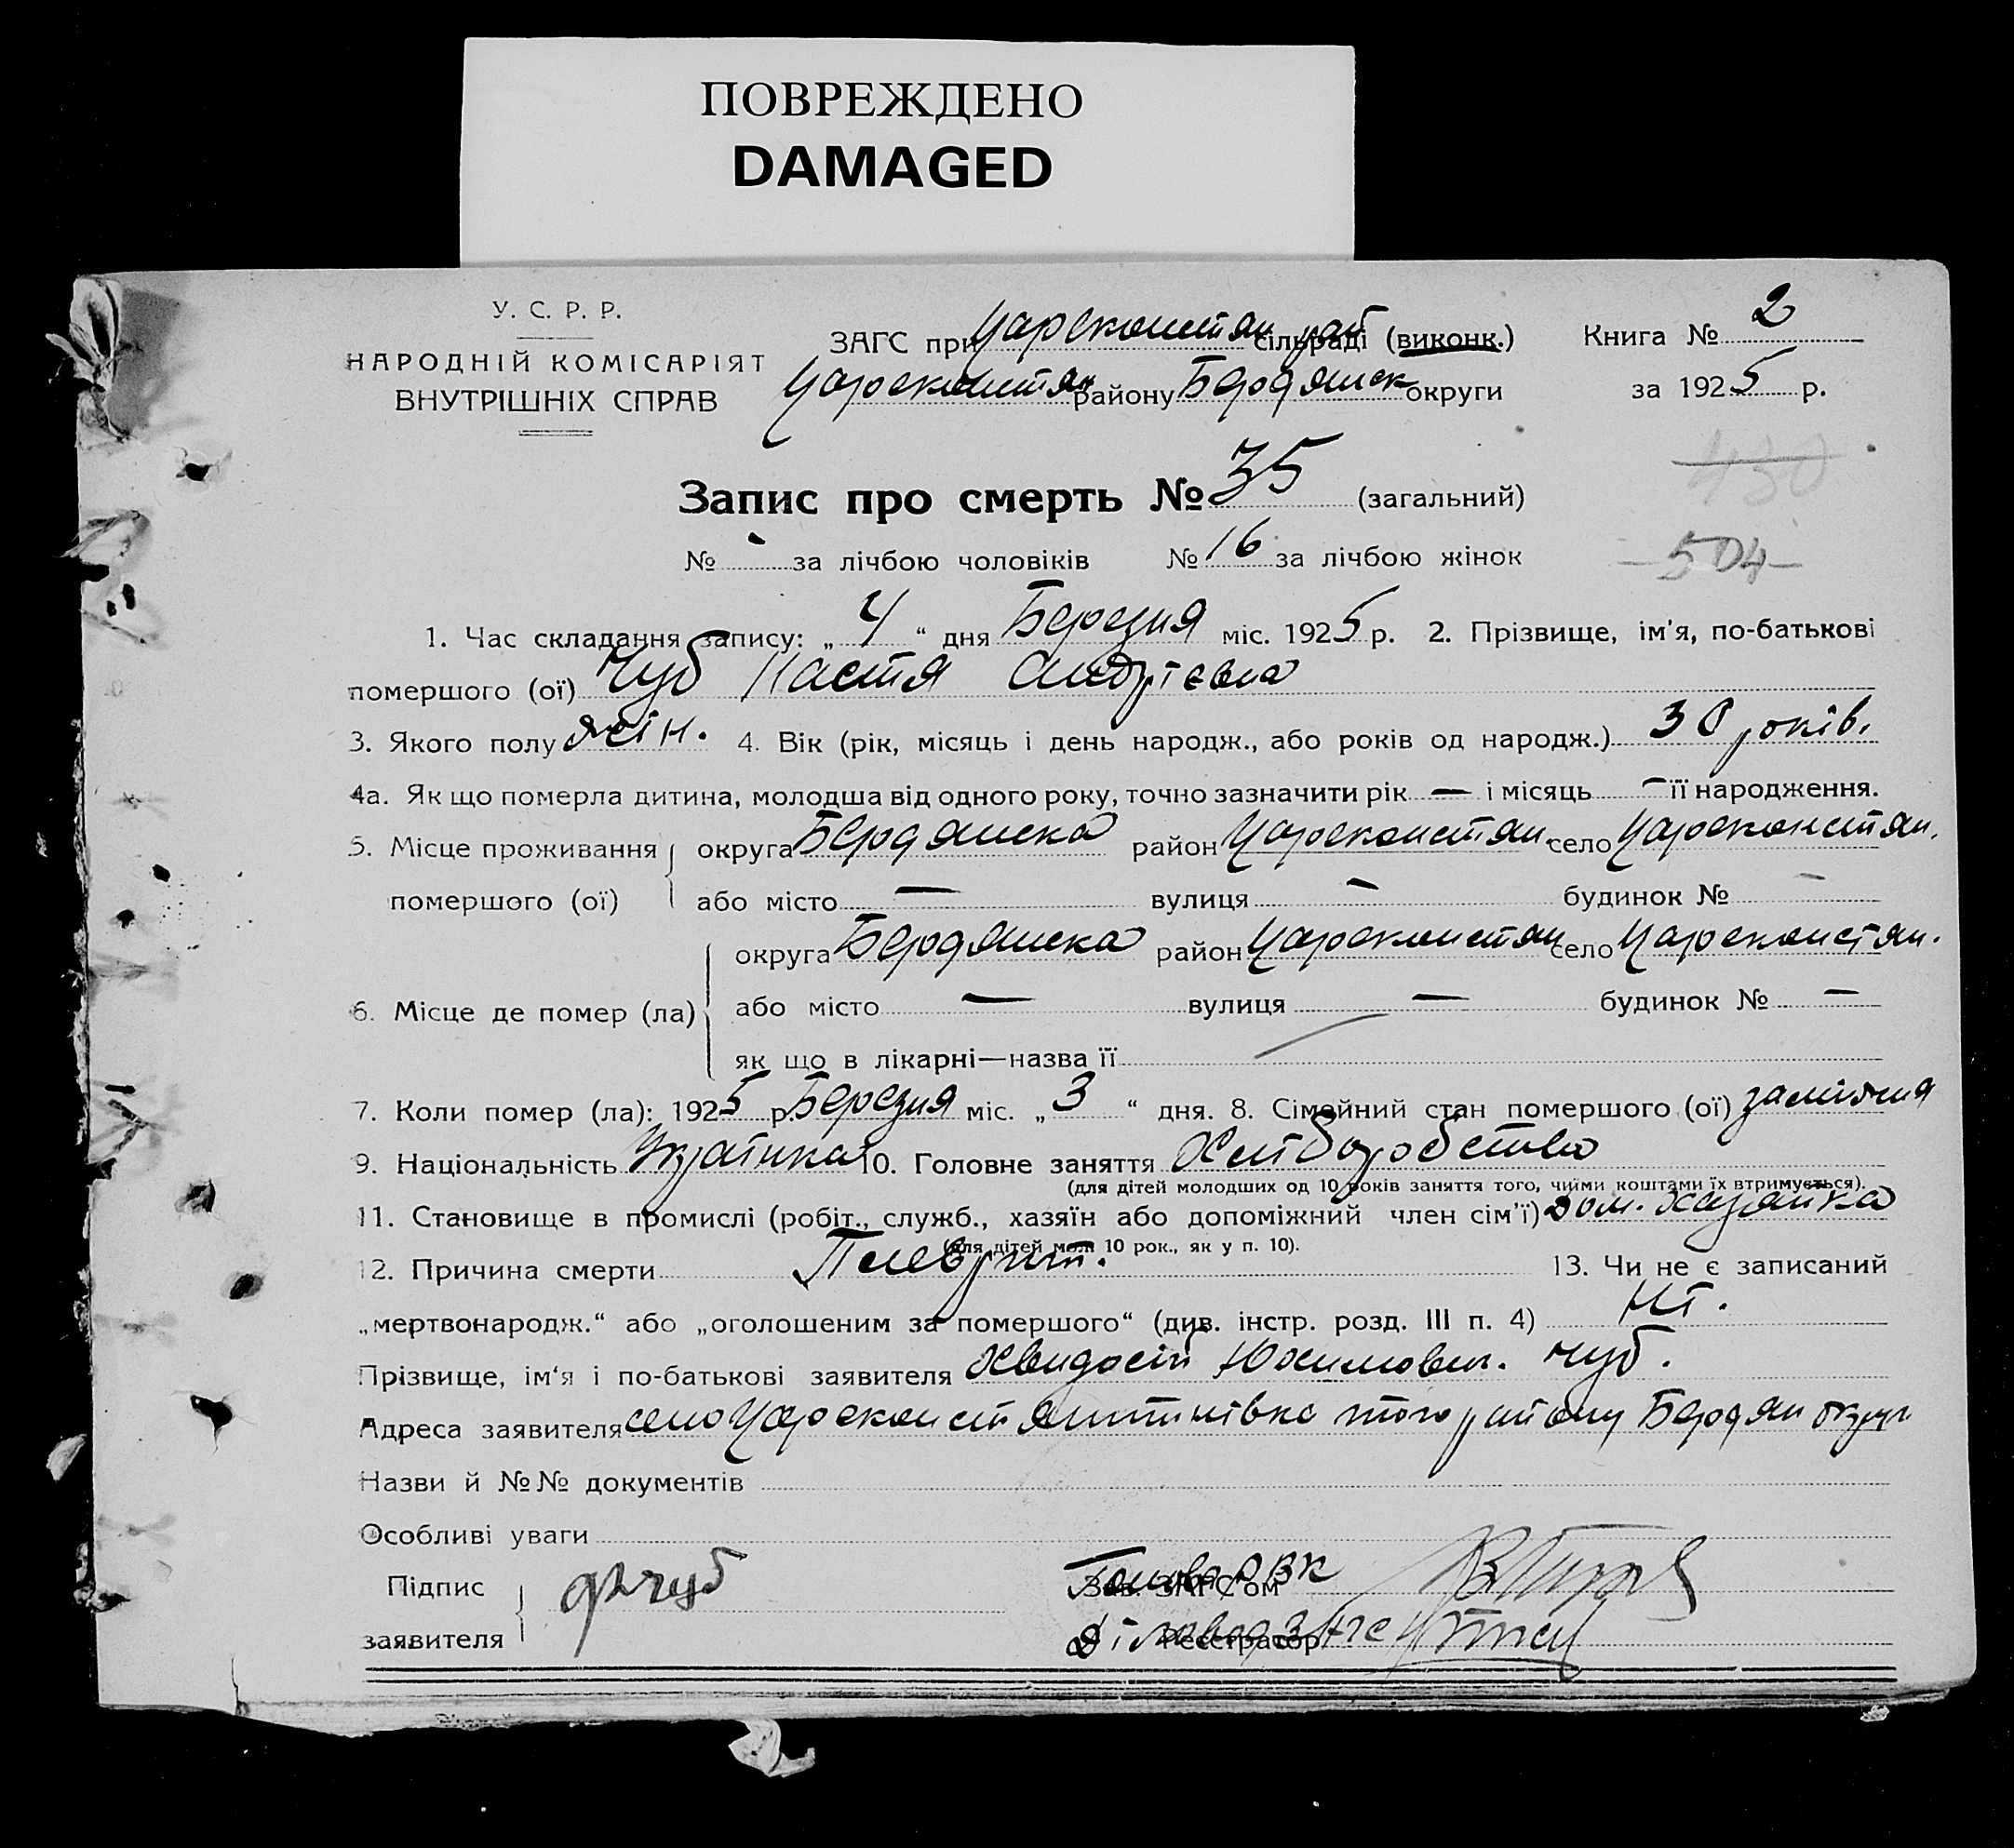 ПОВРЕЖДЕНО
DAMAGED
У. С. Р. Р.
НАРОДНІЙ КОМІСАРІЯТ
ВНУТРІШНІХ СПРАВ
ЗАГС при Царсконстян рай сільраді (виконк.)
Царсконстян району Бердянск округи
Книга № 2
за 1925 р.
430
Запис про смерть № 35 (загальний)
№ - за лічбою чоловіків № 16 за лічбою жінок
-504-
1. Час складання запису: „4“ дня Березня міс. 1925 р. 2. Прізвище, ім'я, по-батькові
помершого (ої) Чуб Настя Андрієвна
3. Якого полу жін. 4. Вік (рік, місяць і день народж., або років од народж.) 30 років.
4а. Як що померла дитина, молодша від одного року, точно зазначити рік — і місяць — її народження.
5. Місце проживання помершого (ої) округа Бердянска район Царсконстян. село Царсконстян.
або місто — вулиця — будинок № —
6. Місце де помер (ла) округа Бердянска район Царсконстян село Царсконстян.
або місто — вулиця — будинок № —
як що в лікарні—назва її
7. Коли помер (ла): 1925 р. Березня міс. „3“ дня. 8. Сімейний стан помершого (ої) заміжня
9. Національність Українка 10. Головне заняття Хліборобство
(для дітей молодших од 10 років заняття того, чиїми коштами їх втримується).
11. Становище в промислі (робіт., служб., хазяїн або допоміжний член сім'ї) дом. хазяйка
(для дітей мол. 10 рок., як у п. 10).
12. Причина смерти Плеврит. 13. Чи не є записаний
„мертвонародж.“ або „оголошеним за помершого“ (див. інстр. розд. III п. 4) Ні.
Прізвище, ім'я і по-батькові заявителя Хведосій Юхимович. Чуб.
Адреса заявителя село Царсконстянтинівка того району Бердян округ
Назви й №№ документів
Особливі уваги
Підпис заявителя Чуб
Зав. ЗАГС'ом Голова РВК
Реєстратор Діловод ЗАГС